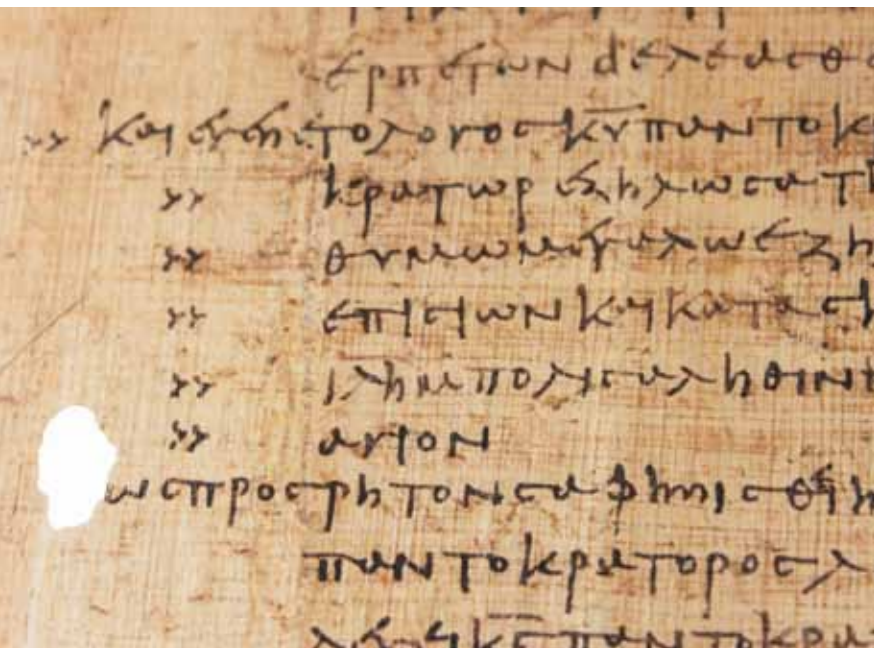 ερπετων δελεασθ
» και εγενετο λογος κ̅υ̅ παντοκ
» κρατωρ εζηλωσα τη
» θυμω μεγαλω εζη
» επι σιων και κατασκ
» ιλημ πολις αληθιν
» αγιον
ως προς ρητον σαφηνισθειη
παντοκρατορος λ
λεγει κ̅ς̅ παντοκρα